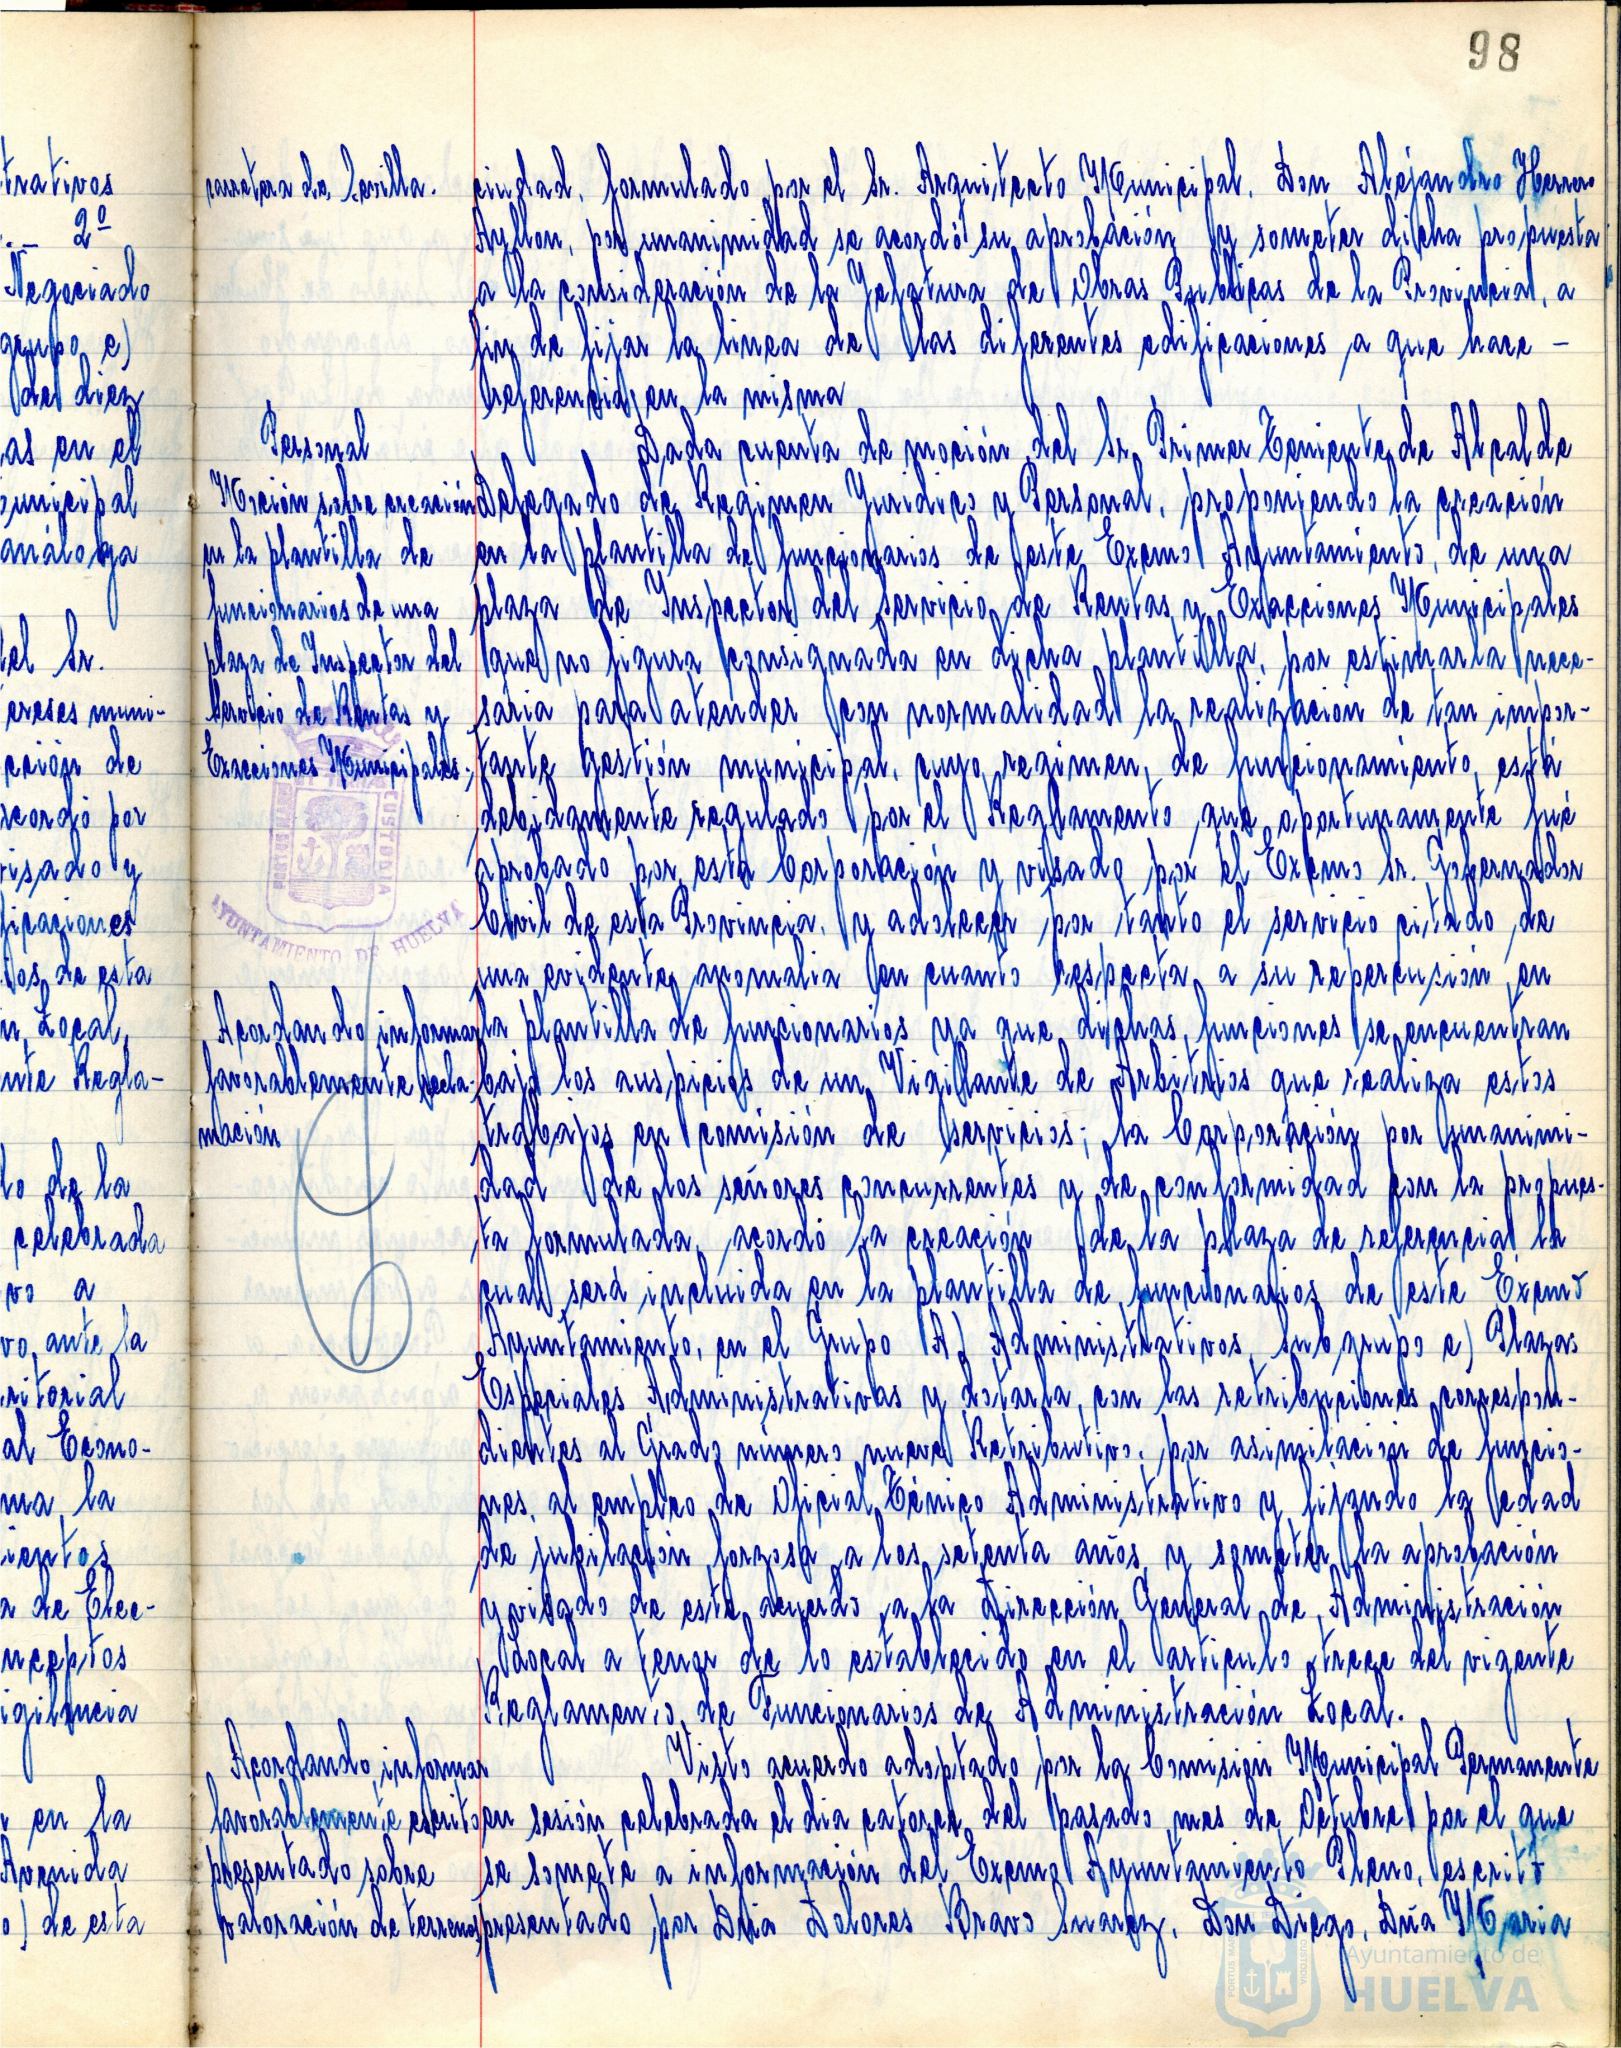 98
trativos
.- 2º
Negociado
grupo c)
de diez
as en el
unicipal
análoga
el Sr.
ereses muni-
cción de
acordó por
visado y
ficaciones
os de esta
n Local,
nte Regla-
lo de la
celebrada
vo a
vo, ante la
ritorial
al Econo-
ma, la
ientos
a de Elec-
nceptos
igilancia
en la
Avenida
o) de esta
carretera de Sevilla.
Personal
Moción sobre creación
en la plantilla de
funcionarios de una
plaza de Inspector del
Servicio de Rentas y
Exacciones Municipales.
Acordando informar
favorablemente recla-
mación
Acordando informar
favorablemente escrito
presentado sobre
valoración de terrenos
ciudad, formulado por el Sr. Arquitecto Municipal, Don Alejandro Herrero
Ayllon, por unanimidad se acordó su aprobación y someter dicha propuesta
a la consideración de la Jefatura de Obras Publicas de la Provincial, a
fin de fijar la linea de las diferentes edificaciones a que hace -
referencia en la misma
Dada cuenta de moción del Sr. Primer Teniente de Alcalde
Delegado de Regimen Juridico y Personal, proponiendo la creación
en la plantilla de funcionarios de este Excmo Ayuntamiento, de una
plaza de Inspector del servicio de Rentas y Exacciones Municipales
que no figura consignada en dicha plantilla, por estimarla nece-
saria para atender con normalidad la realización de tan impor-
tante gestión municipal, cuyo regimen de funcionamiento, está
debidamente regulado por el Reglamento que oportunamente fué
aprobado por esta Corporación y visado por el Excmo Sr. Gobernador
Civil de esta Provincia, y adolecer por tanto el servicio citado, de
una evidente anomalia en cuanto respecta a su repercusión en
la plantilla de funcionarios ya que dichas funciones se encuentran
bajo los auspicios de un Vigilante de Arbitrios que realiza estos
trabajos en comisión de servicios; la Corporación por unanimi-
dad de los señores concurrentes y de conformidad con la propues-
ta formulada, acordó la creación de la plaza de referencia, la
cual será incluida en la plantilla de funcionarios de este Excmo
Ayuntamiento, en el Grupo A) Administrativos, Subgrupo c) Plazas
Especiales Administrativas y dotarla con las retribuciones correspon-
dientes al Grado número nueve Retributivo, por asimilación de funcio-
nes, al empleo de Oficial Técnico Administrativo y fijando la edad
de jubilación forzosa a los setenta años, y someter la aprobación
y visado de este acuerdo a la Dirección General de Administración
Local a tenor de lo establecido en el articulo trece del vigente
Reglamento de Funcionarios de Administración Local.
Visto acuerdo adoptado por la Comisión Municipal Permanente
en sesión celebrada el dia catorce del pasado mes de Octubre por el que
se somete a información del Excmo Ayuntamiento Pleno, escrito
presentado por Dña Dolores Bravo Suarez, Don Diego, Dña Maria
AYUNTAMIENTO DE HUELVA
CUSTODIA
Ayuntamiento de
HUELVA